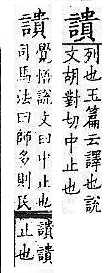 䜋列也玉篇云譯也說
文胡對切中止也
䜋覺悟說文曰中止也
司馬法曰師多則民
䜋䜋
止也